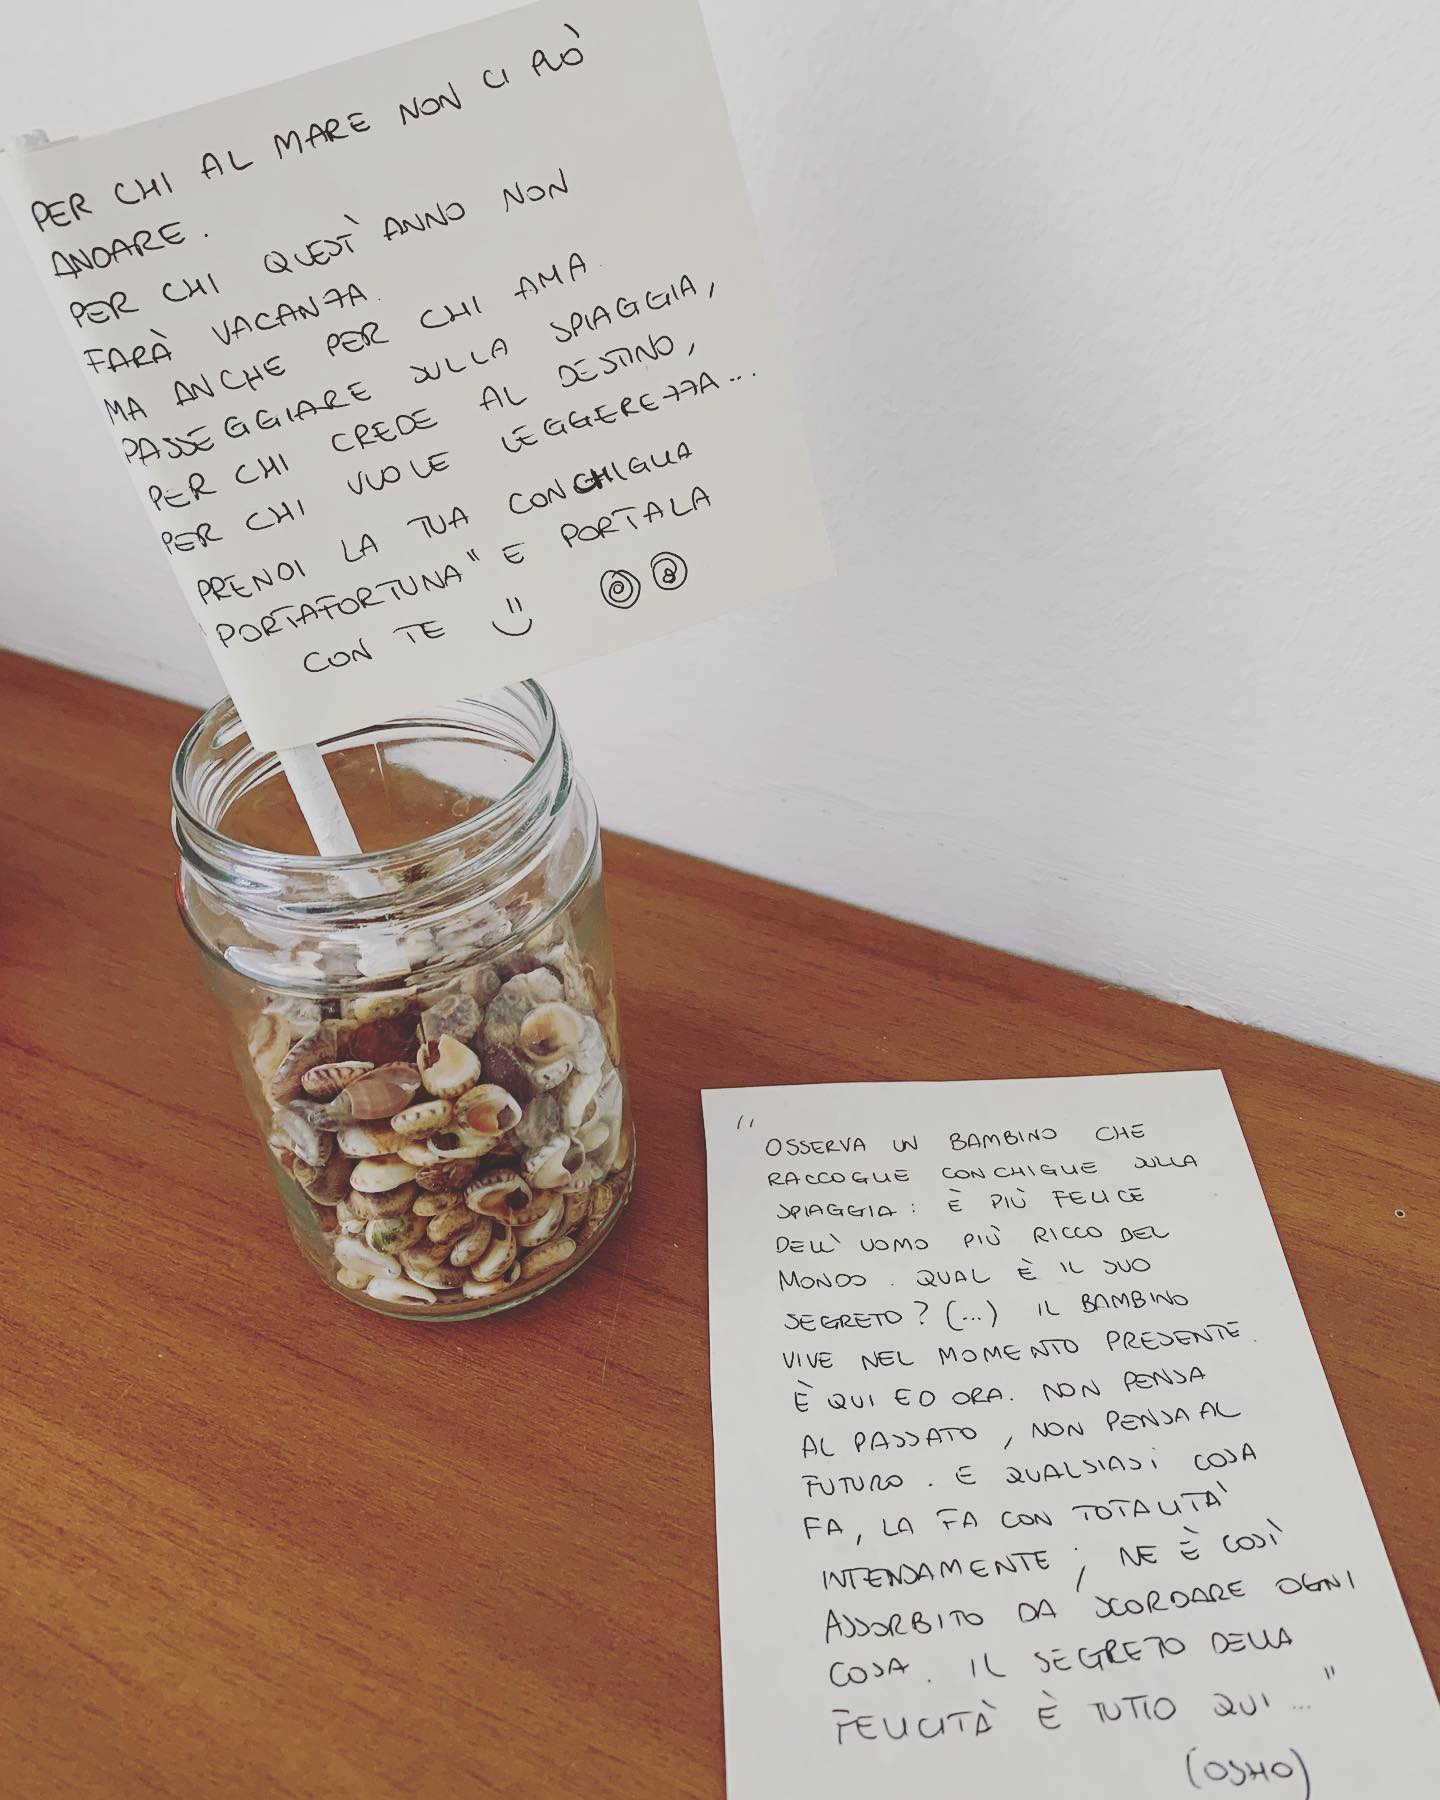 PER CHI AL MARE NON CI PUÒ
ANDARE.
PER CHI QUEST'ANNO NON
FARÀ VACANZA.
MA ANCHE PER CHI AMA
PASSEGGIARE SULLA SPIAGGIA,
PER CHI CREDE AL DESTINO,
PER CHI VUOLE LEGGEREZZA...
PRENDI LA TUA CONCHIGLIA
"PORTAFORTUNA" E PORTALA
CON TE
"OSSERVA UN BAMBINO CHE
RACCOGLIE CONCHIGLIE SULLA
SPIAGGIA: È PIÙ FELICE
DELL'UOMO PIÙ RICCO DEL
MONDO. QUAL È IL SUO
SEGRETO? (...) IL BAMBINO
VIVE NEL MOMENTO PRESENTE.
È QUI ED ORA. NON PENSA
AL PASSATO, NON PENSA AL
FUTURO. E QUALSIASI COSA
FA, LA FA CON TOTALITÀ
INTENSAMENTE; NE È COSÌ
ASSORBITO DA SCORDARE OGNI
COSA. IL SEGRETO DELLA
FELICITÀ È TUTTO QUI..."
(OSHO)